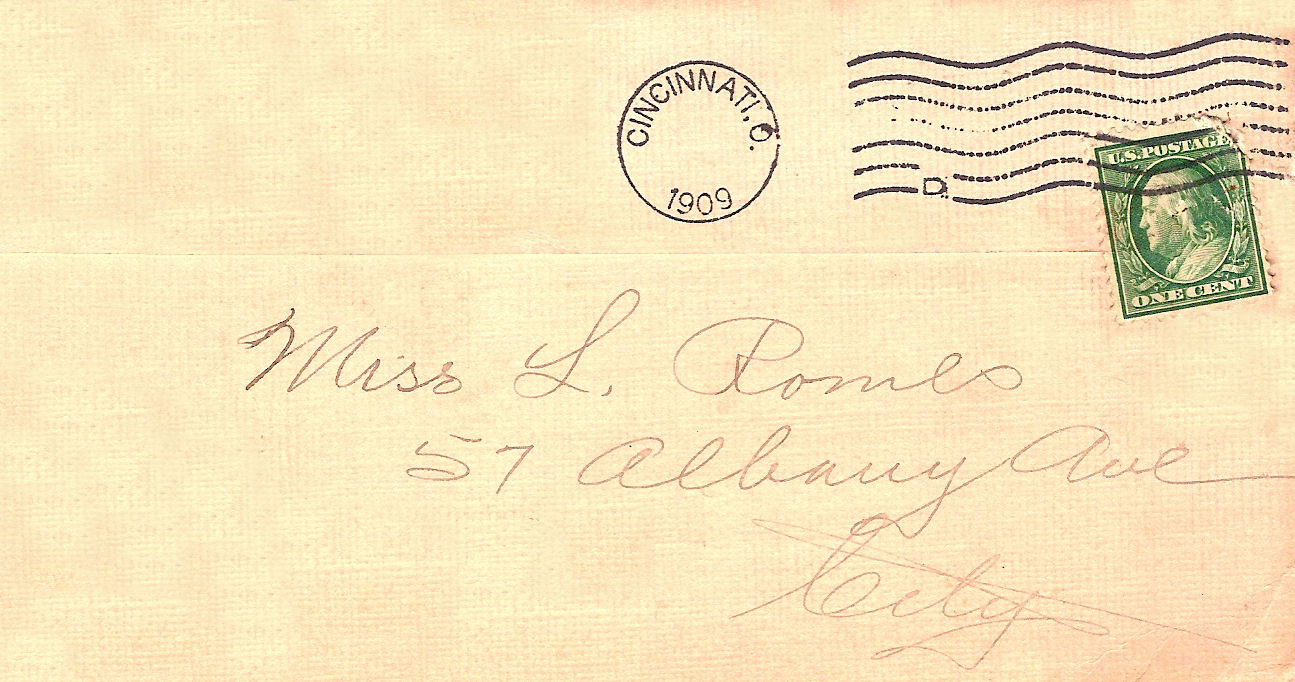 CINCINNATI, O.
1909
D.
U.S. POSTAGE
ONE CENT
Miss L. Romes
57 Albany Ave
City